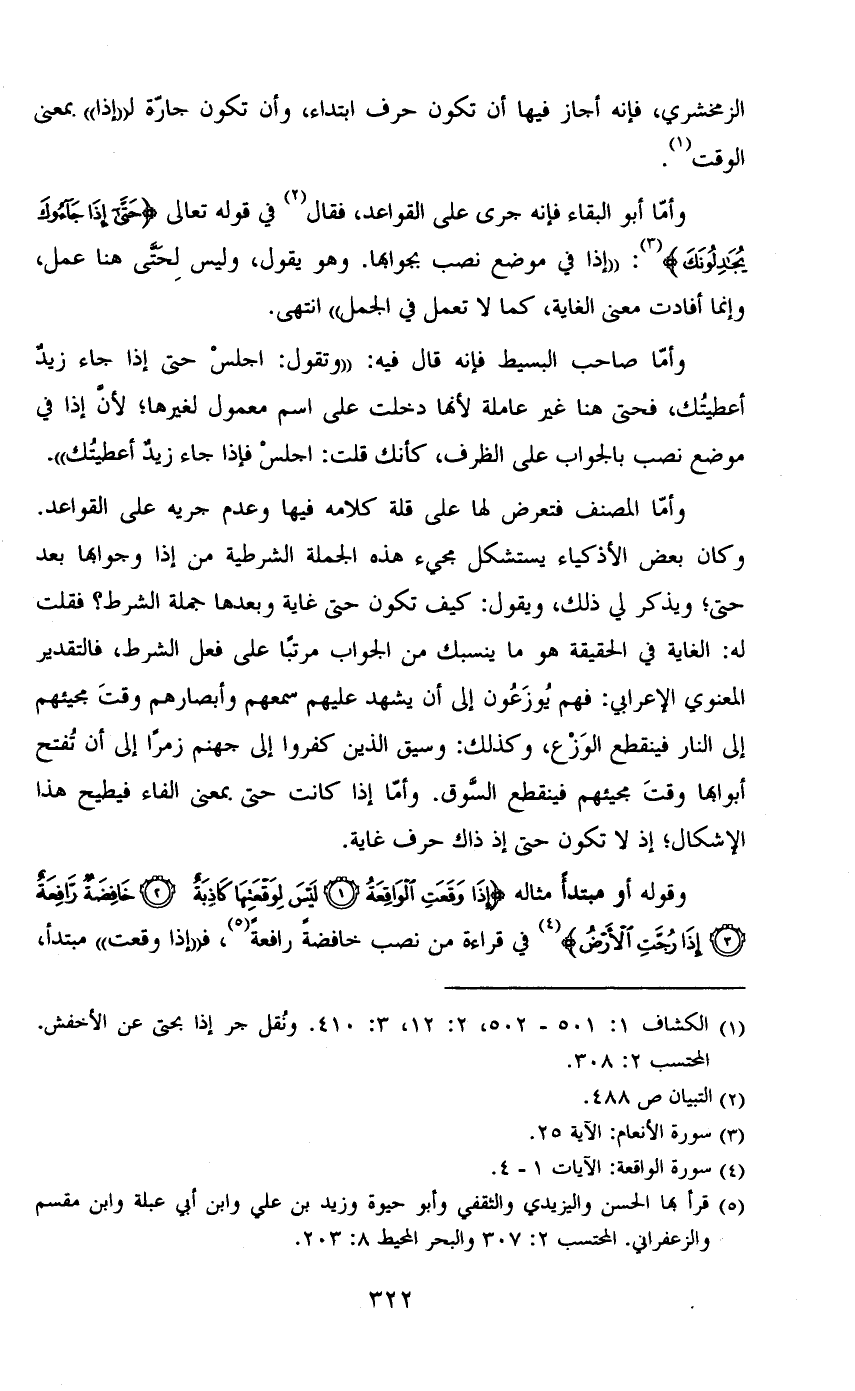 الزمخشري، فإنه أجاز فيها أن تكون حرف ابتداء، وأن تكون جارّة لـ((إذا)) بمعنى
الوقت(١).
وأمّا أبو البقاء فإنه جرى على القواعد، فقال(٢) في قوله تعالى ﴿حَتَّىٰٓ إِذَا جَآءُوكَ
يُجَٰدِلُونَكَ﴾(٣): ((إذا في موضع نصب بجوابها. وهو يقول، وليس لِحَتَّى هنا عمل،
وإنما أفادت معنى الغاية، كما لا تعمل في الجمل)) انتهى.
وأمّا صاحب البسيط فإنه قال فيه: ((وتقول: اجلسْ حتى إذا جاء زيدٌ
أعطيتُك، فحتى هنا غير عاملة لأنها دخلت على اسم معمول لغيرها؛ لأنَّ إذا في
موضع نصب بالجواب على الظرف، كأنك قلت: اجلسْ فإذا جاء زيدٌ أعطيتُك)).
وأمّا المصنف فتعرض لها على قلة كلامه فيها وعدم جريه على القواعد.
وكان بعض الأذكياء يستشكل مجيء هذه الجملة الشرطية من إذا وجوابها بعد
حتى؛ ويذكر لي ذلك، ويقول: كيف تكون حتى غاية وبعدها جملة الشرط؟ فقلت
له: الغاية في الحقيقة هو ما ينسبك من الجواب مرتبًا على فعل الشرط، فالتقدير
المعنوي الإعرابي: فهم يُوزَعُون إلى أن يشهد عليهم سمعهم وأبصارهم وقتَ مجيئهم
إلى النار فينقطع الوَزْع، وكذلك: وسيق الذين كفروا إلى جهنم زمرًا إلى أن تُفتح
أبوابها وقتَ مجيئهم فينقطع السَّوق. وأمّا إذا كانت حتى بمعنى الفاء فيطيح هذا
الإشكال؛ إذ لا تكون حتى إذ ذاك حرف غاية.
وقوله أو مبتدأً مثاله ﴿إِذَا وَقَعَتِ ٱلْوَاقِعَةُ ۝١ لَيْسَ لِوَقْعَتِهَا كَاذِبَةٌ ۝٢ خَافِضَةٌ رَّافِعَةٌ
۝٣ إِذَا رُجَّتِ ٱلْأَرْضُ﴾(٤) في قراءة من نصب خافضةً رافعةً(٥)، فـ((إذا وقعت)) مبتدأ،
(١) الكشاف ١: ٥٠١ - ٥٠٢، ٢: ١٢، ٣: ٤١٠. ونُقل جر إذا بحتى عن الأخفش.
المحتسب ٢: ٣٠٨.
(٢) التبيان ص ٤٨٨.
(٣) سورة الأنعام: الآية ٢٥.
(٤) سورة الواقعة: الآيات ١ - ٤.
(٥) قرأ بها الحسن واليزيدي والثقفي وأبو حيوة وزيد بن علي وابن أبي عبلة وابن مقسم
والزعفراني. المحتسب ٢: ٣٠٧ والبحر المحيط ٨: ٢٠٣.
٣٢٢